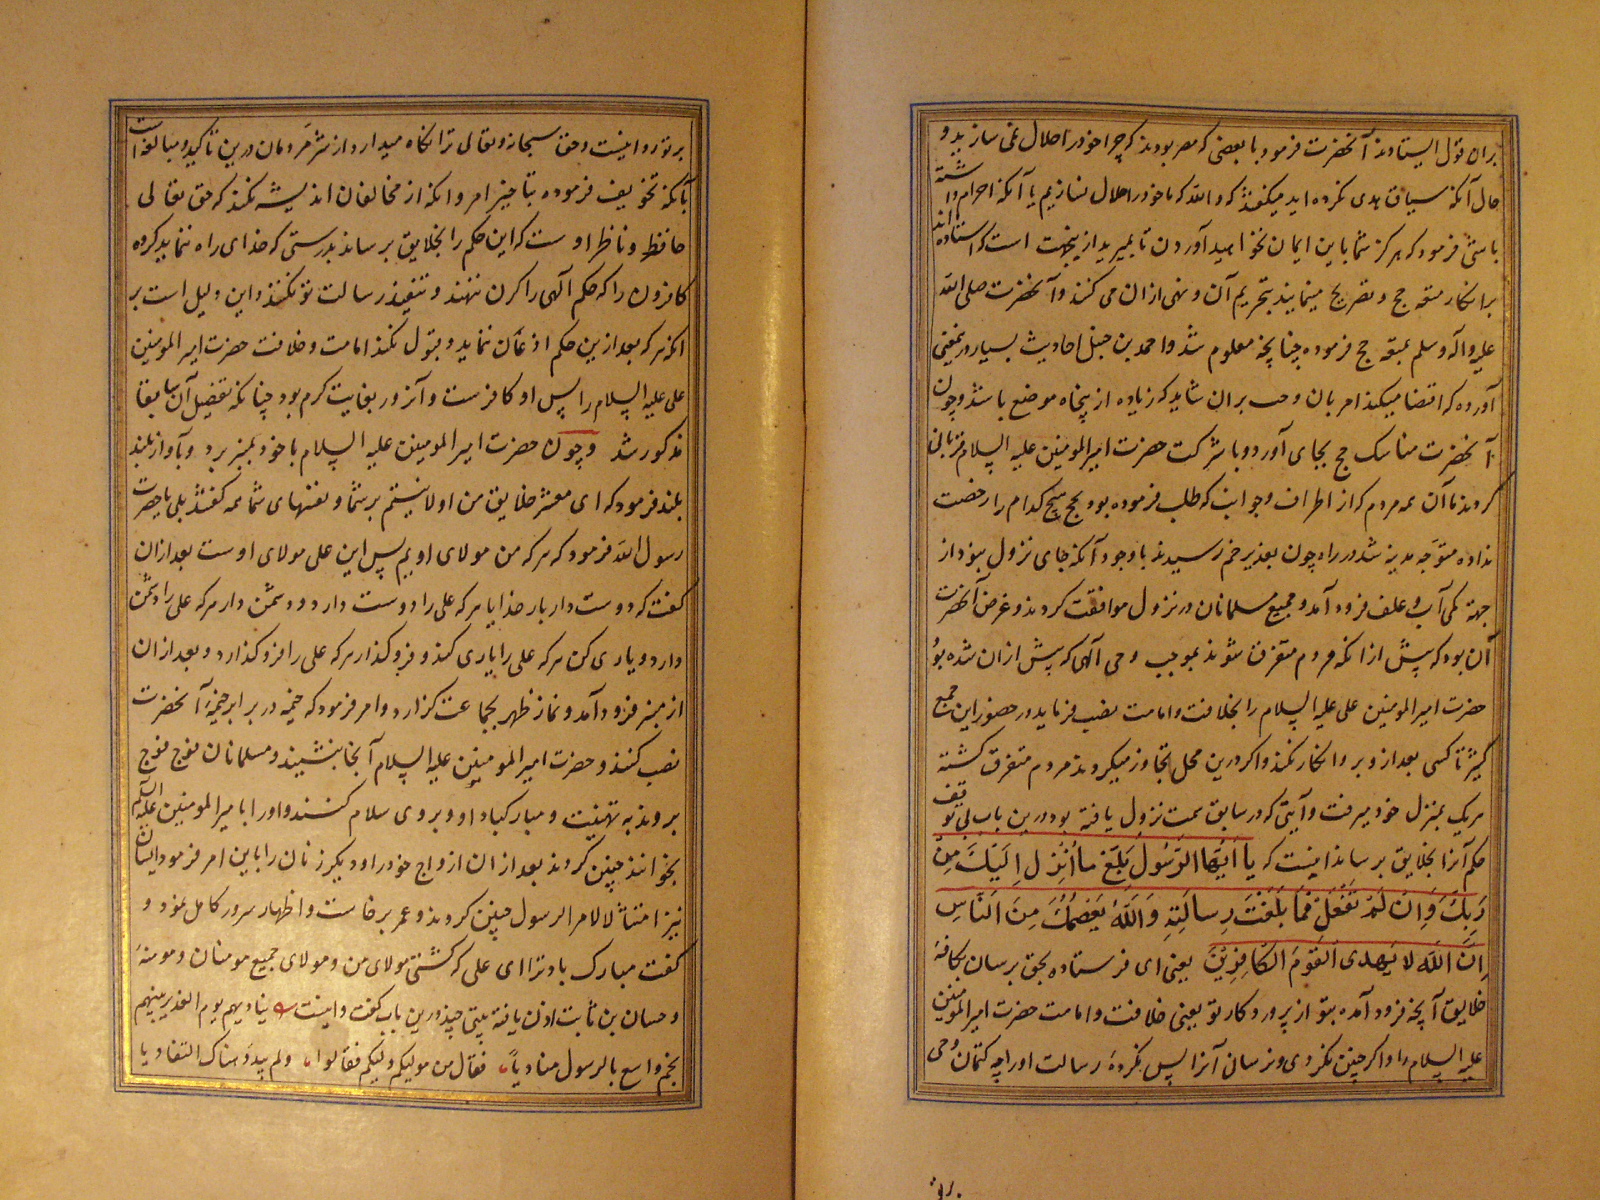 بران قول ایستادند آنحضرت فرمود با بعضی که مصر بودند که چرا خود را حلال نمی سازید و
حال آنکه سیاق هدی نکرده اید میگفتند که والله که ما خود را حلال نسازیم یا آنکه احرام داشته
باشی فرمود که هرگز شما باین ایمان نخواهید آوردن تا بمیرید ازینجهت است که استاده اند
بر انکار متعه حج و تصریح مینمایند بتحریم آن و نهی ازان می کنند و آنحضرت صلی الله
علیه و آله و سلم بمتعه حج فرموده چنانچه معلوم شد و احمد بن حنبل احادیث بسیار درین معنی
آورده که اقتضا میکند امر بآن و حث بر آن شاید که زیاده از پنجاه موضع باشد و چون
آنحضرت مناسک حج بجای آورد و با شرکت حضرت امیرالمومنین علیه السلام قربانی
کردند با آن همه مردم که از اطراف و جوانب که طلب فرموده بود بحج هیچ کدام را رخصت
نداده متوجه مدینه شد در راه چون بغدیر خم رسیدند با وجود آنکه جای نزول نبود از
جهة کمی آب و علف فرود آمد و جمیع مسلمانان در نزول موافقت کردند و غرض آنحضرت
آن بود که پیش از انکه مردم متفرق شوند بموجب وحی آلهی که پیش ازان شده بود
حضرت امیرالمومنین علی علیه السلام را بخلافت و امامت نصب فرماید در حضور این جمع
کثیر تا کسی بعد ازو بر و انکار نکند و اگر درین محل تجاوز میکردند مردم متفرق گشته
هریک بمنزل خود میرفت و آیتی که در سابق سمت نزول یافته بود درین باب بی توقف
حکم آنرا بخلایق برساند اینست که یا ایها الرسول بلغ ما انزل الیک من
ربک و ان لم تفعل فما بلغت رسالته والله یعصمک من الناس
ان الله لا یهدی القوم الکافرین یعنی ای فرستاده بحق برسان بکافهٔ
خلایق آنچه فرود آمده بتو از پروردگار تو یعنی خلافت و امامت حضرت امیرالمومنین
علیه السلام را و اگر چنین نکردی و نرسانی آنرا پس نکردهٔ رسالت او را چه کتمان وحی
بر تو روا نیست و حق سبحانه و تعالی ترا نگاه میدارد از شر مردمان درین تاکید و مبالغه است
بآنکه تخویف فرموده بتاخیر امر و انکه از مخالفان اندیشه نکند که حق تعالی
حافظ و ناظر اوست که این حکم را بخلایق برساند بدرستی که خدای راه ننماید گروه
کافرون را که حکم آلهی را گردن ننهند و تنفیذ رسالت تو نکنند و این دلیل است بر
انکه هر که بعد ازین حکم اذعان ننماید و قبول نکند امامت و خلافت حضرت امیرالمومنین
علی علیه السلام را پس او کافرست و آنروز بغایت گرم بود چنانکه تفصیل آن سابقا
مذکور شد و چون حضرت امیرالمومنین علیه السلام با خود بمنبر برد و بآواز بلند
بلند فرمود که ای معشر خلایق من اولا نیستم بر شما و نفسهای شما همه گفتند بلی یا حضرت
رسول الله فرمود که هر که من مولای اویم پس این علی مولای اوست بعد ازان
گفت که دوست دار بار خدایا هر که علی را دوست دارد و دشمن دار هر که علی را دشمن
دارد و یاری کن هر که علی را یاری کند و فرو گذار هر که علی را فرو گذارد و بعد ازان
از منبر فرود آمد و نماز ظهر بجماعت گزارد و امر فرمود که خیمه در برابر خیمهٔ آنحضرت
نصب کنند و حضرت امیرالمومنین علیه السلام آنجا بنشیند و مسلمانان فوج فوج
بروند به تهنیت و مبارکباد او و بروی سلام کنند و او را بامیرالمومنین علیه السلم
بخوانند چنین کردند بعد ازان ازواج خود را و دیگر زنان را باین امر فرمود ایشان
نیز امتثالا لامر الرسول چنین کردند و عمر برخاست و اظهار سرور کامل نمود و
گفت مبارک باد ترا ای علی که گشتی مولای من و مولای جمیع مومنان و مومنهٔ
و حسان بن ثابت اذن یافته بیتی چند درین باب گفت و اینست ینادیهم یوم الغدیر نبیهم
بخم و اسمع بالرسول منادیاً فقال من مولیکم ولیکم فقالوا ولم یبدو هناک التعادیا